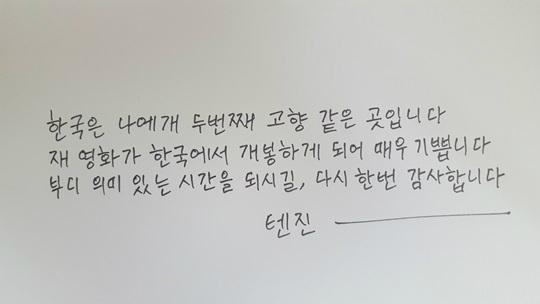 한국은 나에개 두번째 고향 같은 곳입니다
재 영화가 한국에서 개봉하게 되어 매우 기쁩니다
부디 의미 있는 시간을 되시길, 다시 한번 감사합니다
텐진